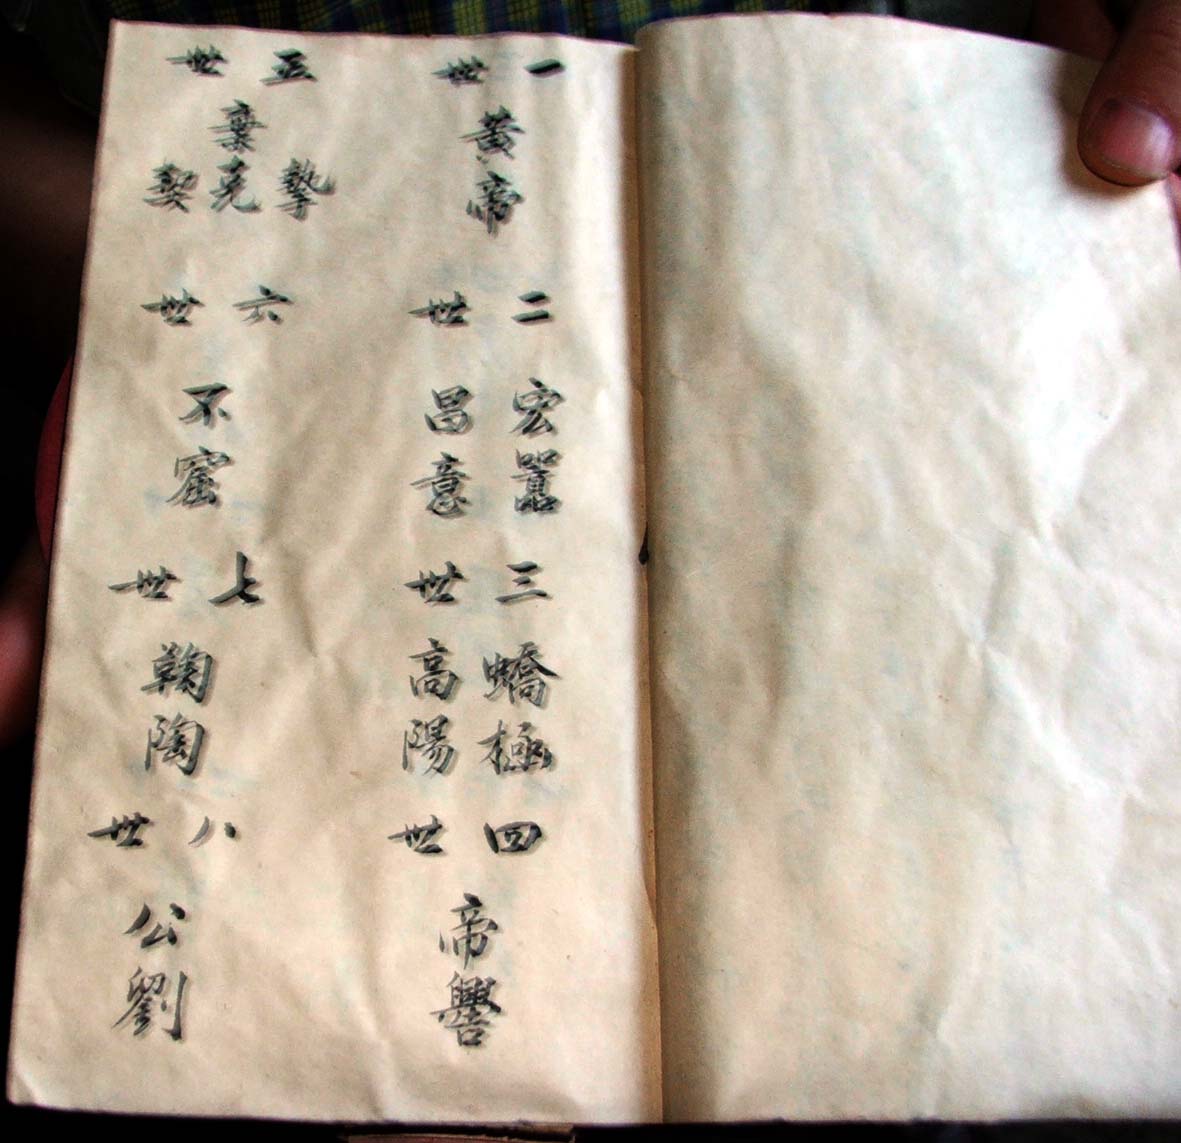 一世
黄帝
二世
宏嚣
昌意
三世
蟜極
高陽
四世
帝嚳
五世
棄
摯
尭
契
六世
不窋
七世
鞠陶
八世
公劉